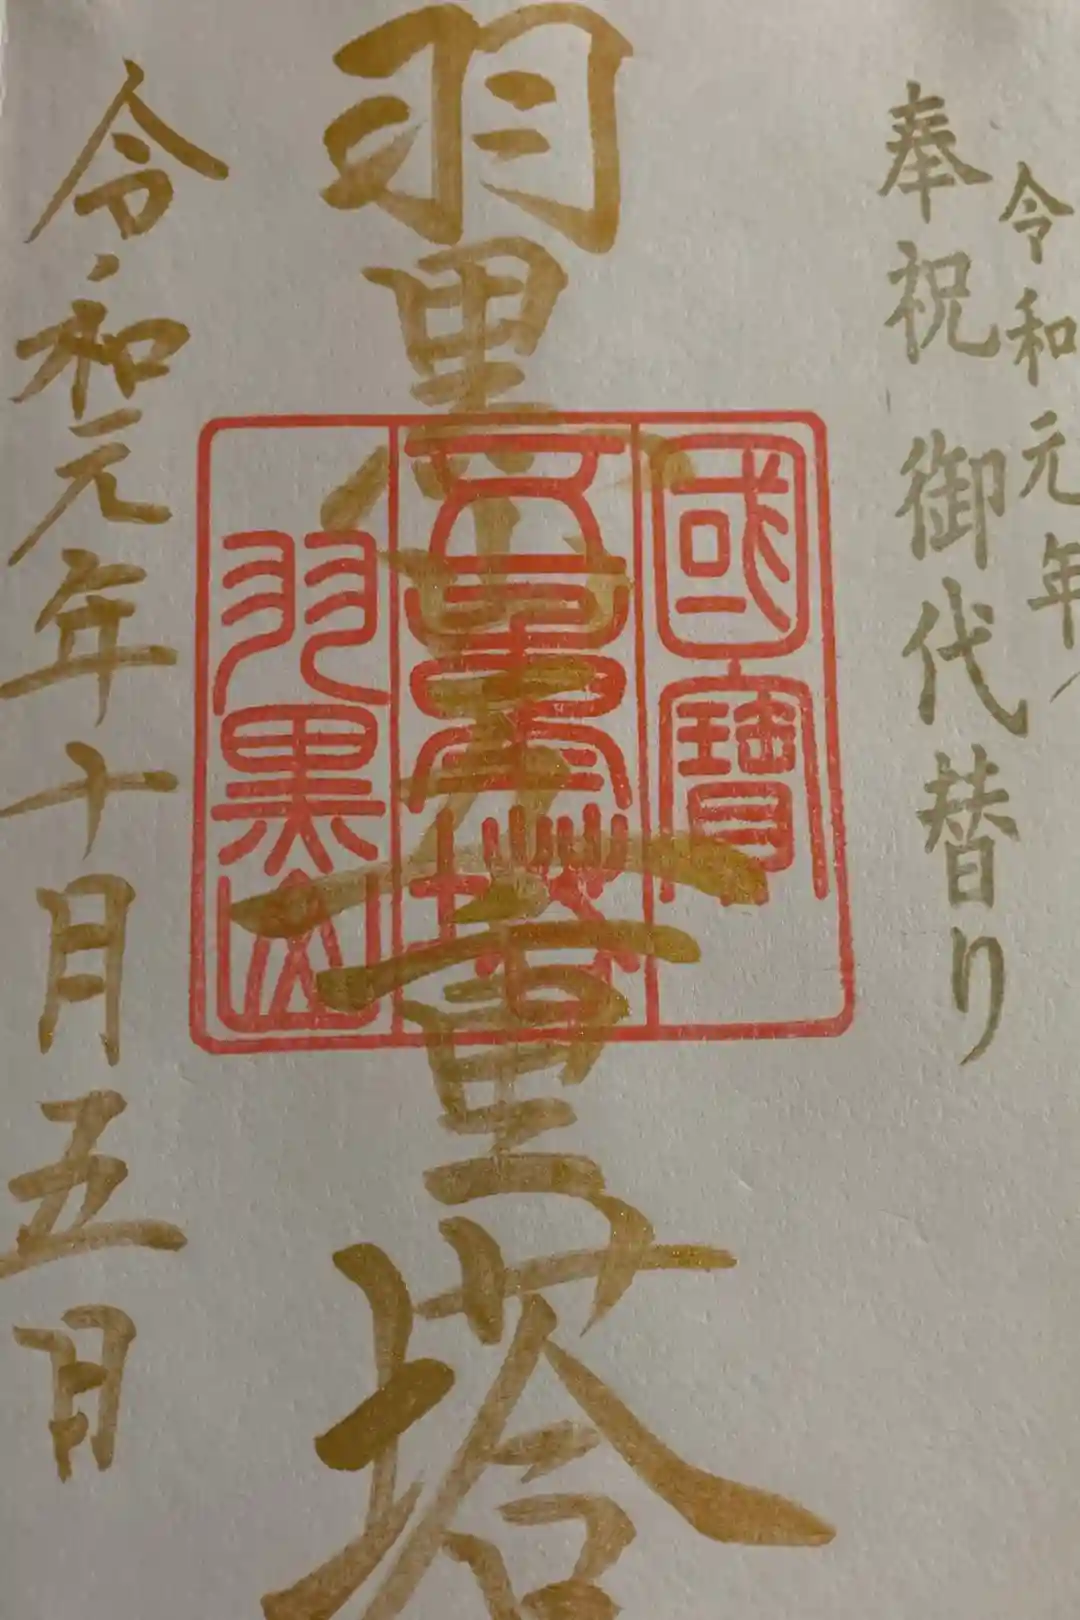 令和元年
奉祝 御代替り
國寶
五重塔
羽黒山
羽黒山五重塔
令和元年十月五日